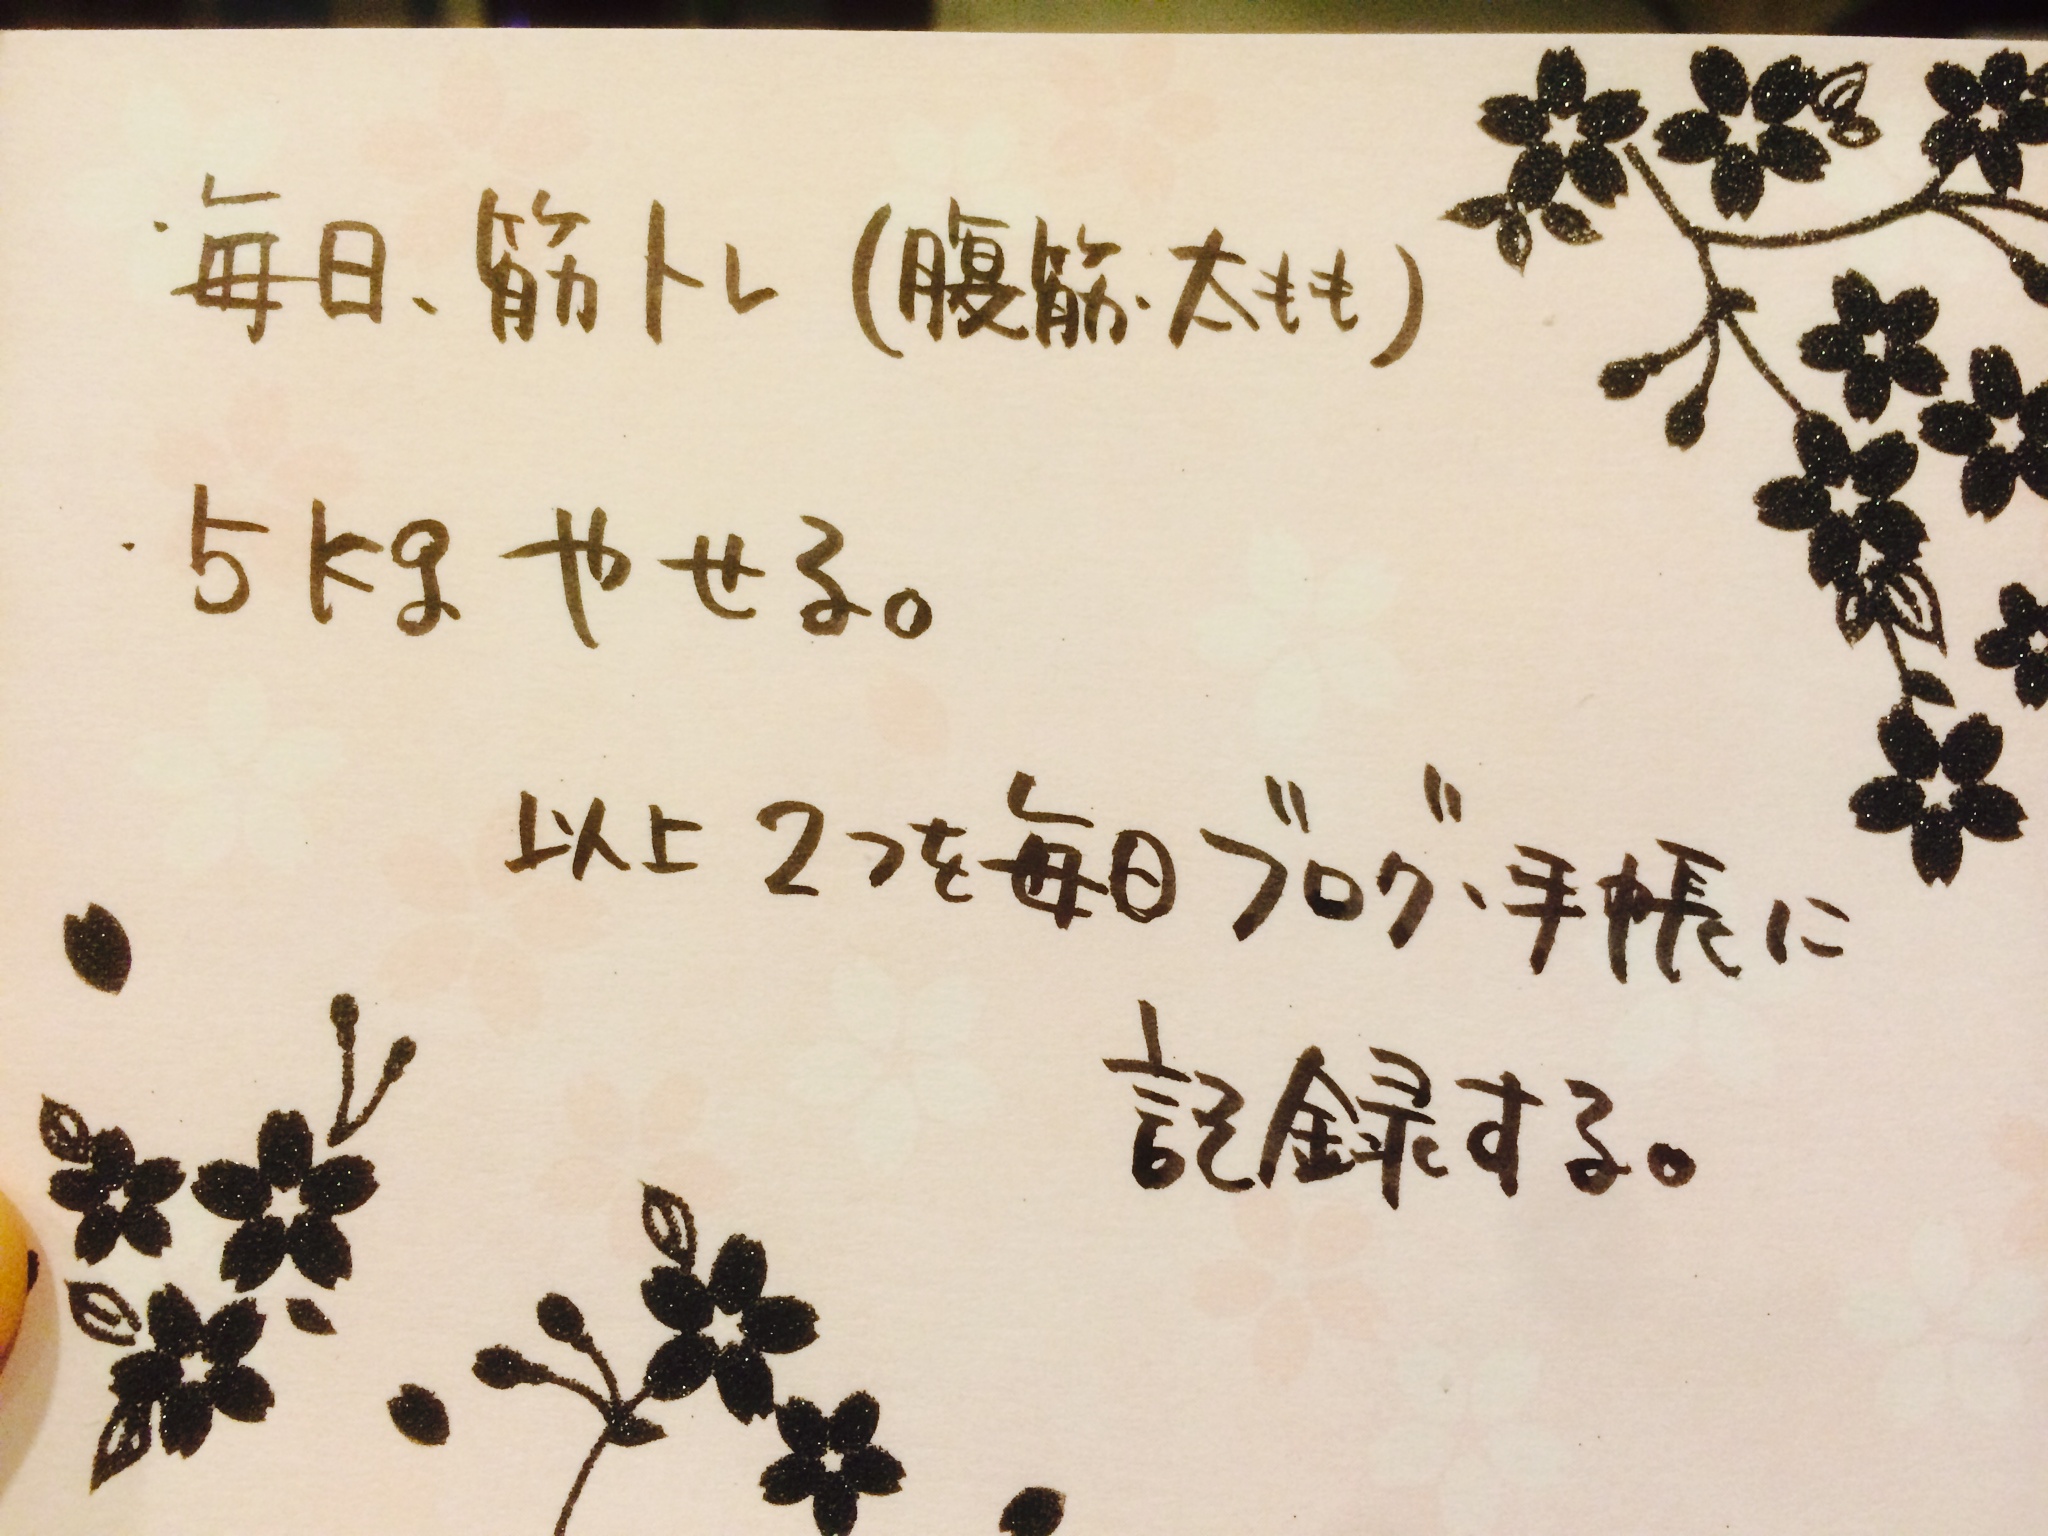 ・毎日、筋トレ(腹筋・太もも)
・5kgやせる。
以上2つを毎日ブログ、手帳に
記録する。